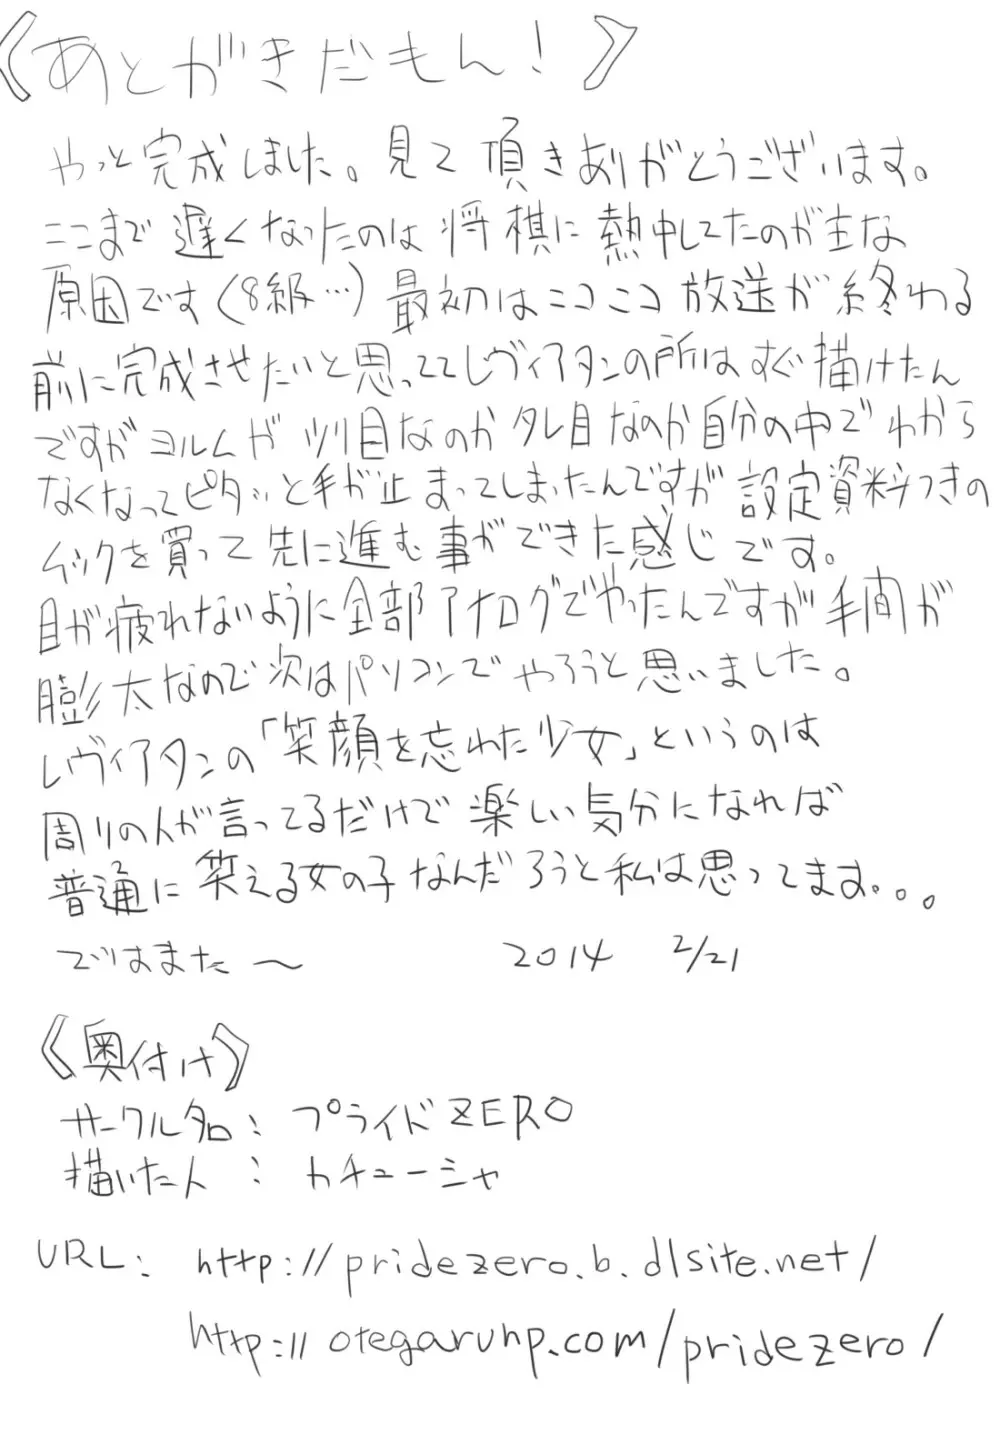 《あとがきだもん！》
やっと完成しました。見て頂きありがとうございます。
ここまで遅くなったのは将棋に熱中してたのが主な
原因です（8級…）最初はニコニコ放送が終わる
前に完成させたいと思っててレヴィアタンの所はすぐ描けたん
ですがヨルムがツリ目なのかタレ目なのか自分の中でわから
なくなってピタッと手が止まってしまったんですが設定資料つきの
ムックを買って先に進む事ができた感じです。
目が疲れないように全部アナログでやったんですが手間が
膨大なので次はパソコンでやろうと思いました。
レヴィアタンの「笑顔を忘れた少女」というのは
周りの人が言ってるだけで楽しい気分になれば
普通に笑える女の子なんだろうと私は思ってます。。。
ではまた〜 2014 2/21
《奥付け》
サークル名：プライドZERO
描いた人：カチューシャ
URL: http://pridezero.b.dlsite.net/
http://otegaruhp.com/pridezero/